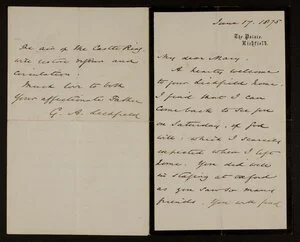 June 17. 1875
The Palace,
Lichfield.
My dear Mary.
A hearty welcome
to your Lichfield home
I find that I can
come back to see you
on Saturday, if God
will: which I scarcely
expected when I left
home. You did well
in staying at Oxford
as you saw so many
friends. You will find
the air of the Castle Ring
will restore vigour and
circulation.
Much love to both
Your affectionate Father
G. A. Lichfield